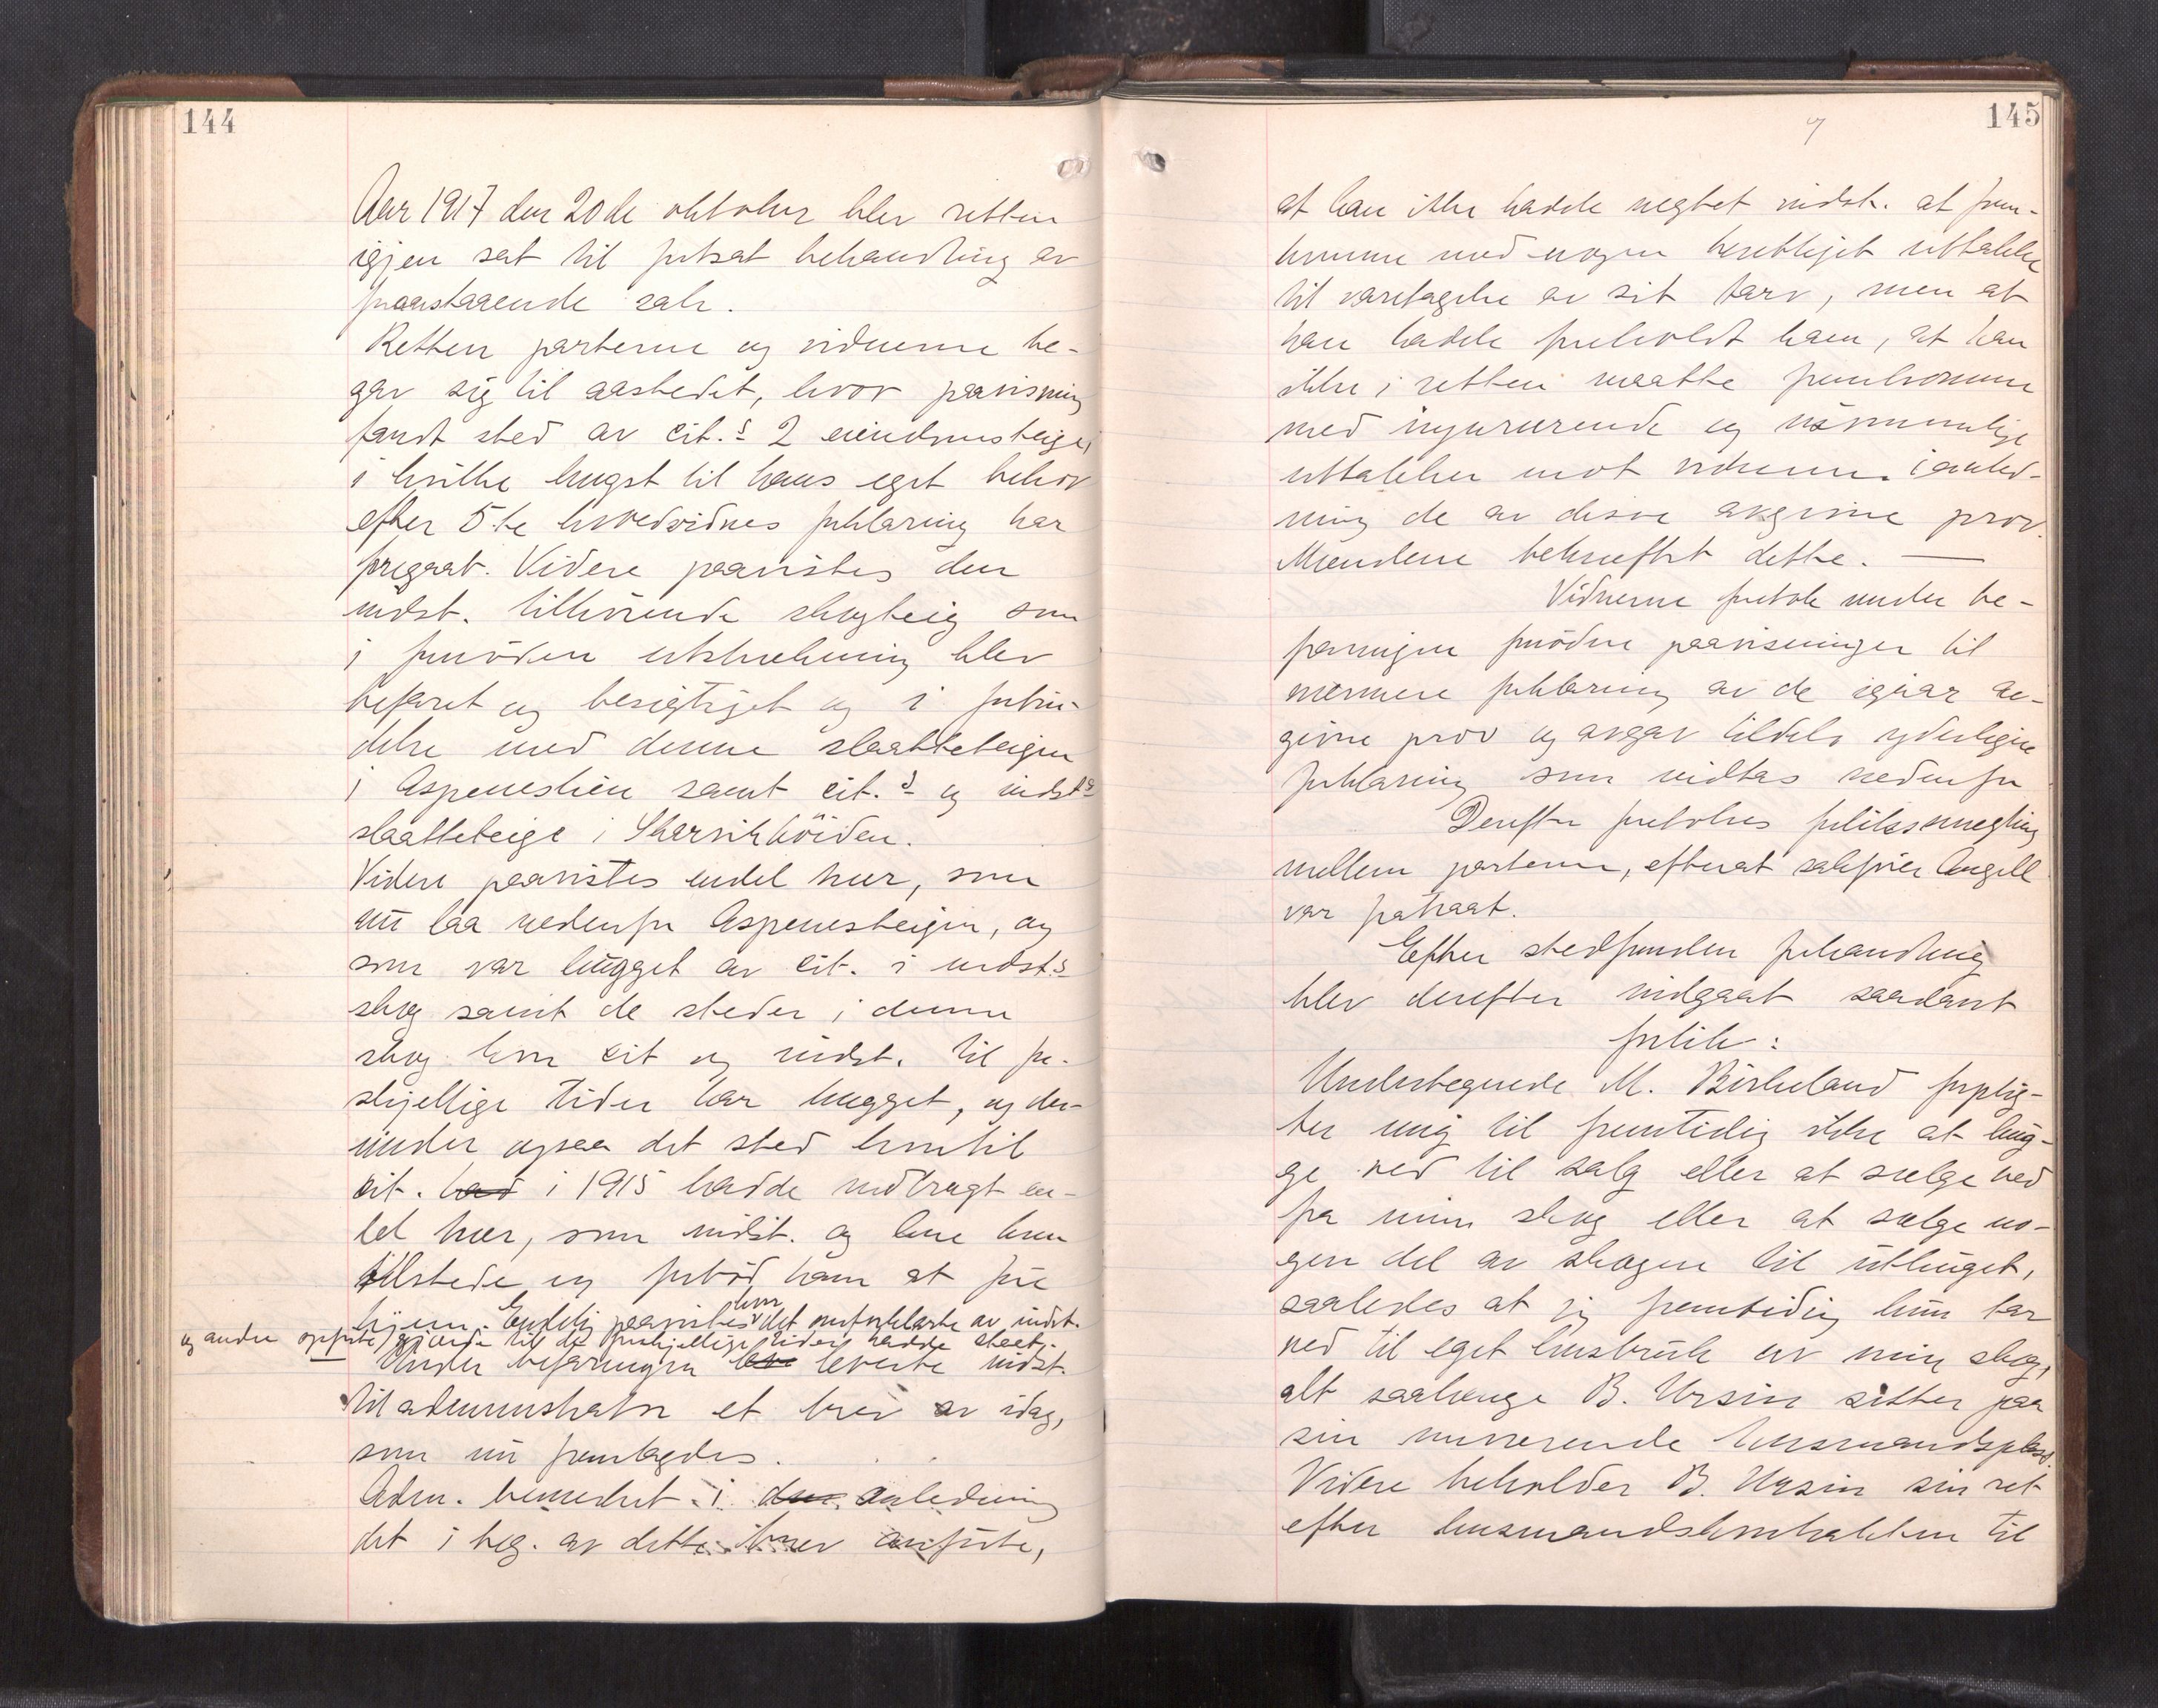 144
Aar 1917 den 20de oktober blev retten
igjen sat til fortsat behandling av
foranstaaende sak.
Retten parterne og vidnerne be-
gav sig til aastedet, hvor paavisning
fandt sted av cit.s 2 eiendomsteiger
i hvilke hugst til hans eget behov
efter 5te hovedvidnes forklaring har
foregaat. Videre paavistes den
indst. tilhörende skogteig som
i fornöden utstrekning blev
befaret og besigtiget og i forbin-
delse med denne slaatteteigen
i Aspeneslien samt cit.s og indst.s
slaatteteige i Skarvikhöiden.
Videre paavistes endel kur, som
nu laa nedenfor Aspenesteigen, og
som var hugget av cit. i indst.s
skog samt de steder i denne
skog hvor cit og indst. til for-
skjellige tider har hugget, og der-
under ogsaa det sted hvortil
cit. had i 1915 hadde nedbragt en-
del kur, som indst. og hans kone
tilstede og forböd ham at före
hjem. Endelig paavistes hvor det omforklarte av indst.
og andre opförte gjærde til de forskjellige tider hadde staat.
Under befaringen leverte indst.
til administrator et brev av idag,
som nu fremlagdes.
Adm. bemerket i den anledning
det i beg. av dette brev anförte,
145
at han ikke hadde negtet indst. at frem-
komme med nogen berettiget uttalelse
til varetagelse av sit tarv, men at
han hadde foreholdt ham, at han
ikke i retten maatte fremkomme
med injurierende og usömmelige
uttalelser mot vidnerne i anled-
ning de av disse avgivne prov.
Mændene bekræftet dette. —
Vidnerne foretok under be-
faringen fornödne paavisninger til
nærmere forklaring av de igaar av-
givne prov og avgav tildels yderligere
forklaring som indtas nedenfor
Derefter foretokes forliksmegling
mellem parterne, efterat sakförer Angell
var fratraat.
Efter stedfunden forhandling
blev derefter indgaat saadant
forlik:
Undertegnede M. Birkeland forplig-
ter mig til fremtidig ikke at hug-
ge ved til salg eller at sælge ved
fra min skog eller at sælge no-
gen del av skogen til uthugst,
saaledes at jeg fremtidig kun tar
ved til eget husbruk av min skog,
alt saalænge B. Ursin sitter paa
sin nuværende husmandsplass.
Videre beholder B. Ursin sin ret
efter husmandskontrakten til